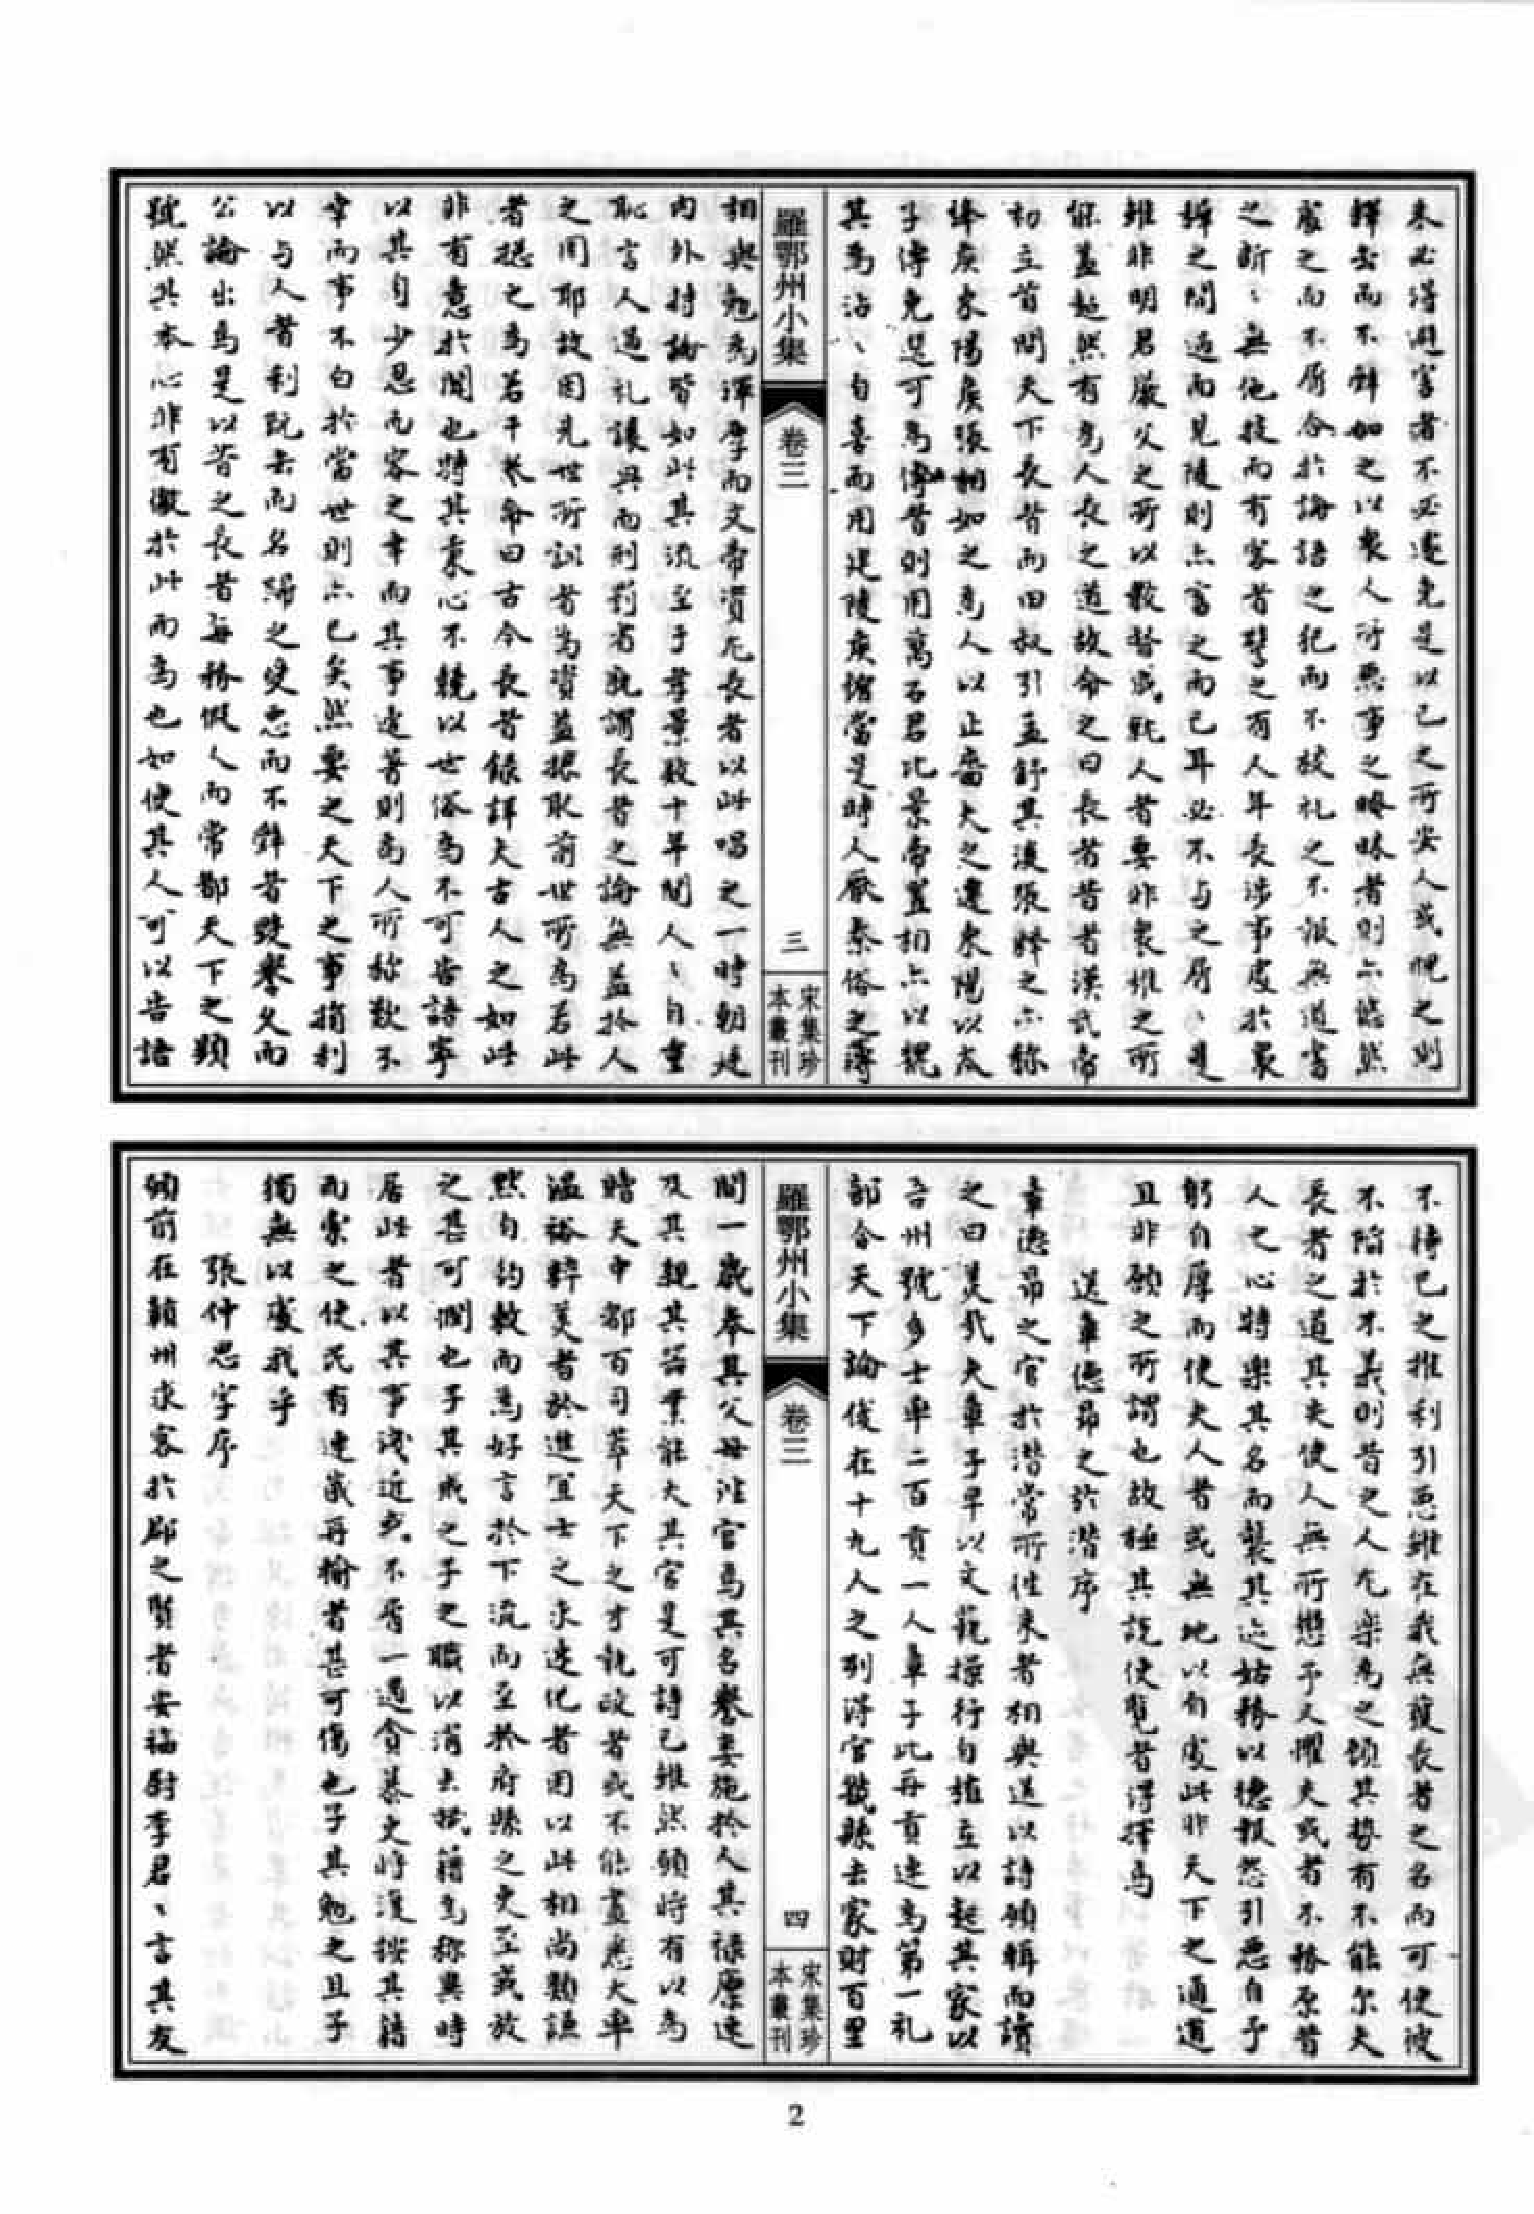 未必得避害者不必遽免是以己之所安人或怳之則
擇無而不辭加之以衆人所惡事之曖昧者則亦恬然
處之而不屑含於詬語之犯而不校礼之不報無道當
之斷、無他技而有容者譬之有人年長涉事處於衆
稺之間過而見陵則亦審之而已耳必不与之屑、是
雖非明君嚴父之所以教督成就人者要非衆稚之所
能盖超然有爲人長之道故命之曰長者昔者漢武帝
初立首問天下長者而田叔引孟舒其後張釋之亦称
絳侯東陽侯張相如之爲人以止嗇夫之遷東陽以太
子傅免是可爲傅者則用萬石君比景帝置相亦以魏
其爲沾、自喜而用建陵侯綰當是時人厭秦俗之薄
相與勉爲渾厚而文帝資尤長者以此唱之一時朝廷
内外持論皆如此其流至于孝景數十年間人、自重
恥言人過礼讓興而刑罰省孰謂長者之論無益於人
之用耶故因見世所訓者爲資益據取前世所爲若此
者揔之爲若干卷命曰古今長者錄詳夫古人之如此
非有意於聞也特其秉心不競以世俗爲不可告語寧
以其自少忍而容之幸而其事近著則爲人所称歎不
幸而事不白於當世則亦已矣然要之天下之事捐利
以与人者利既去而名歸之受惡而不辭者毀擧久而
公論出焉是以昔之長者每務假人而常都天下之顯
號然其本心非有徼於此而爲也如使其人可以告語
羅鄂州小集
卷三
三
宋集珍
本叢刊
不待己之推利引惡雖在我無獲長者之名而可使彼
不陷於不義則昔之人尤樂爲之顧其勢有不能尔夫
長者之道其失使人無所懲予又懼夫或者不務原昔
人之心特樂其名而襲其迹姑務以德報怨引惡自予
躬自厚而使夫人者或無地以自處此非天下之通道
且非顧之所謂也故極其說使覽者得擇焉
送章德昂之於潛序
章德昂之官於潛常所往来者相與送以詩顧輯而讀
之曰美哉夫章子早以文藝操行自植立以起其家以
吾州號多士率二百貢一人章子比再貢連爲第一礼
部合天下論俊在十九人之列得官觀縣去家財百里
間一歲奉其父母涖官爲其名譽妻施於人其禄廪逮
及其親其器業能大其官是可詩已雖然顧將有以爲
贈夫中都百司萃天下之才執政者或不能盡悉大率
温裕粹美者於進宜士之求速化者因以此相尚顯譴
然自約敕而爲好言於下流而至於府縣之吏至或放
之甚可憫也子其戒之子之職以消去搣籍爲称與時
居此者以其事淺近或不屑一過貪暴史將復按其籍
而索之使民有連歲再輸者甚可傷也子其勉之且子
獨無以處我乎
張仲思字序
頃前在贛州求客於郡之賢者安福尉李君、言其友
羅鄂州小集
卷三
四
宋集珍
本叢刊
2